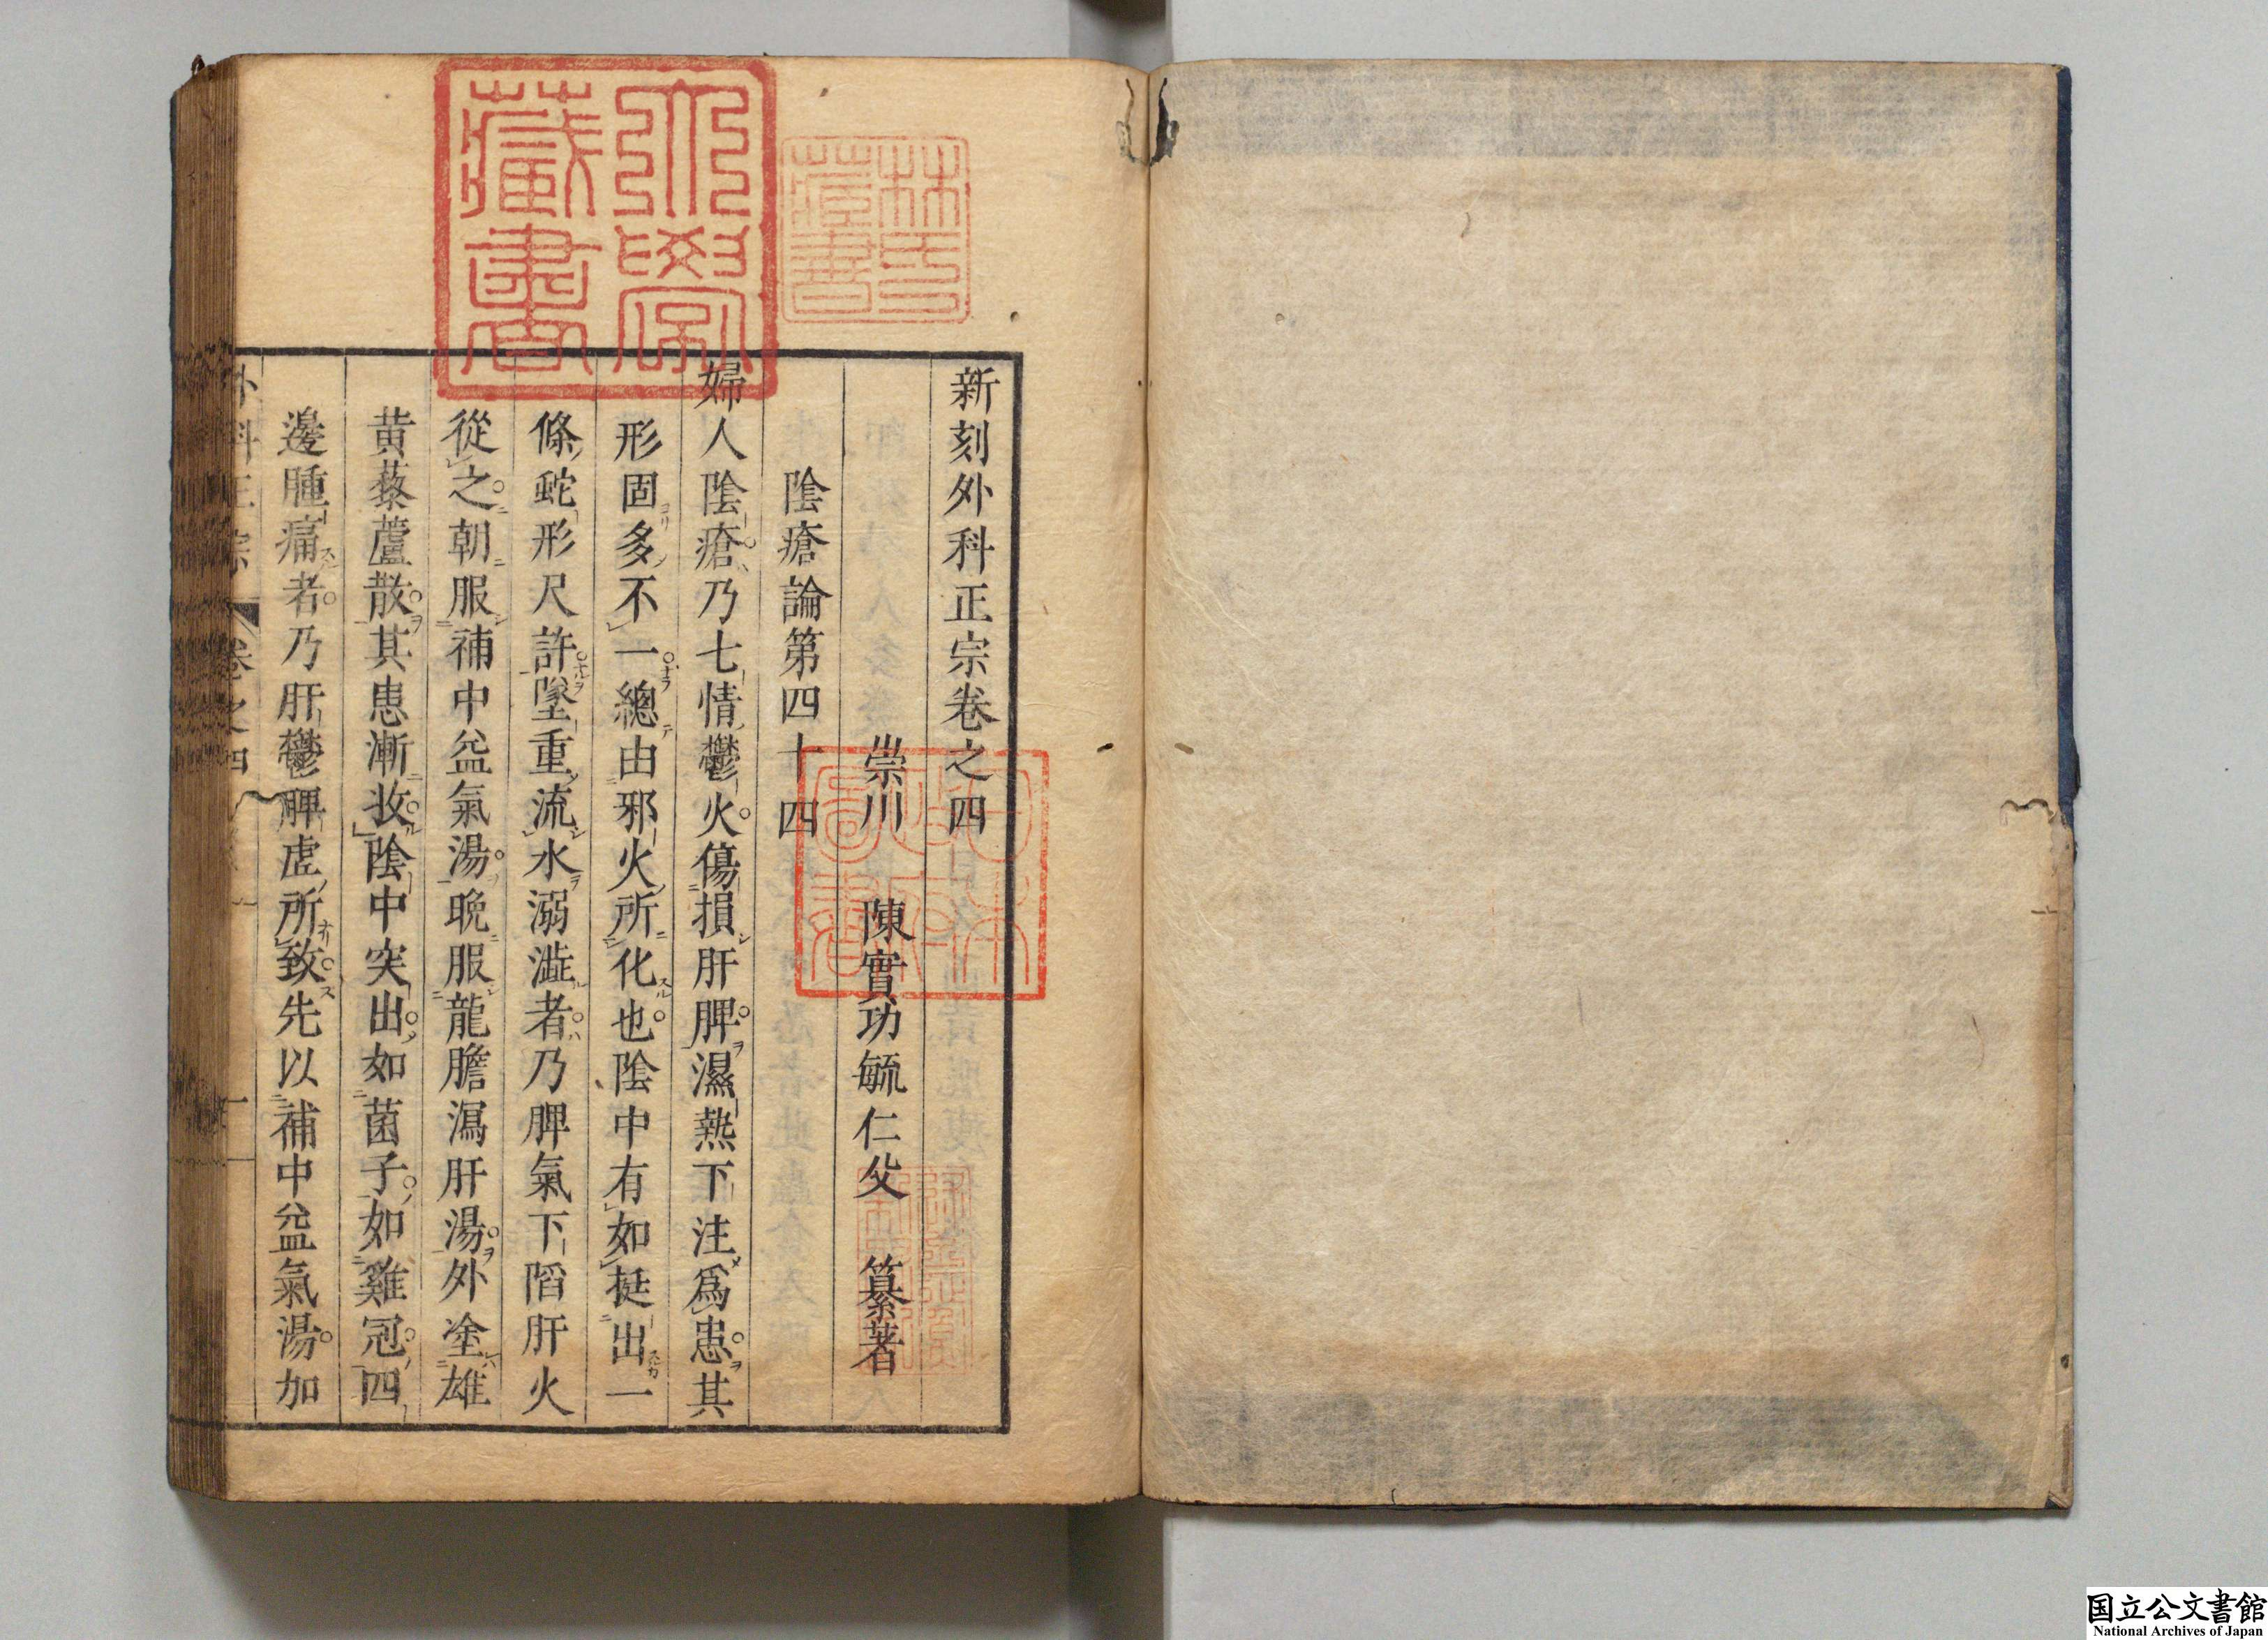 新刻外科正宗卷之四
崇川 陳實功毓仁父 纂著
陰瘡論第四十四
婦人陰瘡乃七情鬱火傷損肝脾濕熱下注爲患其
形固多不一總由邪火所化也陰中有如挺出一
條蛇形尺許墜重流水溺澁者乃脾氣下陷肝火
從之朝服補中益氣湯晚服龍膽瀉肝湯外塗雄
黃藜蘆散其患漸收陰中突出如菌子如雞冠四
邊腫痛者乃肝鬱脾虛所致先以補中益氣湯加
外科正宗 卷之四 一
大學藏書
林氏藏書
日本政府圖書
国立公文書館
National Archives of Japan